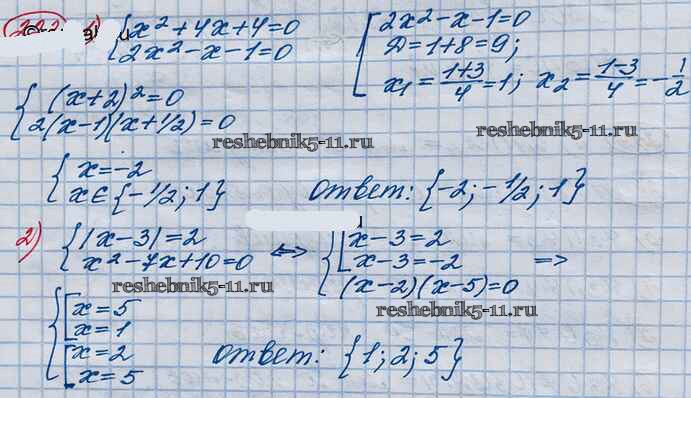 222 1) { x² + 4x + 4 = 0
2x² - x - 1 = 0
[ 2x² - x - 1 = 0
Д = 1 + 8 = 9;
x₁ = (1+3)/4 = 1; x₂ = (1-3)/4 = -1/2
{ (x+2)² = 0
2(x-1)(x+1/2) = 0
reshebnik5-11.ru
reshebnik5-11.ru
{ x = -2
x ∈ {-1/2; 1}
Ответ: {-2; -1/2; 1}
2) { |x-3| = 2
x² - 7x + 10 = 0
<=> { [ x-3 = 2
x-3 = -2
(x-2)(x-5) = 0
=>
reshebnik5-11.ru
reshebnik5-11.ru
{ [ x = 5
x = 1
[ x = 2
x = 5
Ответ: {1; 2; 5}